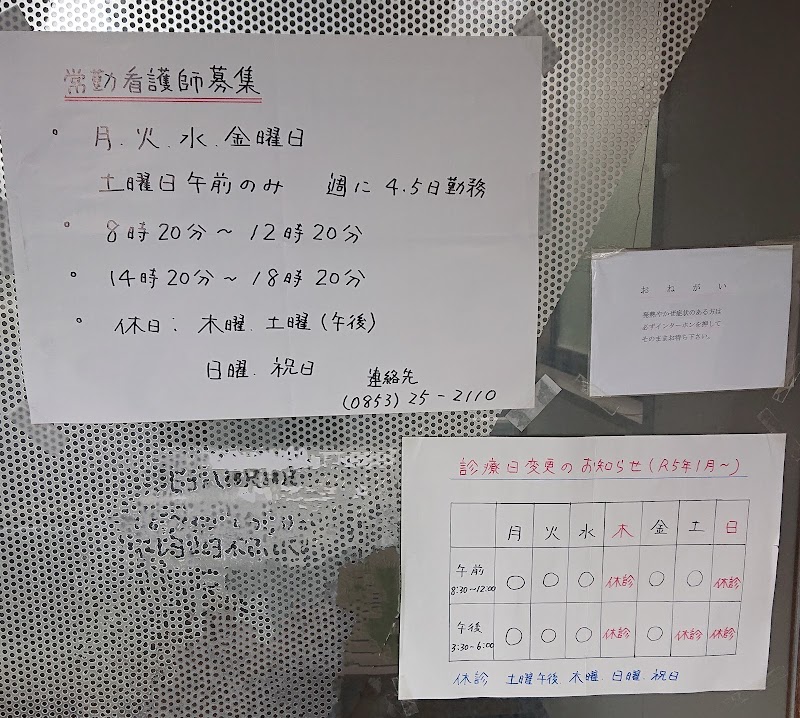 常勤看護師募集
。月.火.水.金曜日
土曜日午前のみ 週に4.5日勤務
。8時20分～12時20分
。14時20分～18時20分
。休日:木曜.土曜(午後)
日曜.祝日
連絡先
(0853)25-2110
おねがい
発熱やかぜ症状のある方は
必ずインターホンを押して
そのままお待ち下さい。
診療日変更のお知らせ(R5年1月～)
月 火 水 木 金 土 日
午前 8:30~12:00 ○ ○ ○ 休診 ○ ○ 休診
午後 3:30-6:00 ○ ○ ○ 休診 ○ 休診 休診
休診 土曜午後.木曜.日曜.祝日